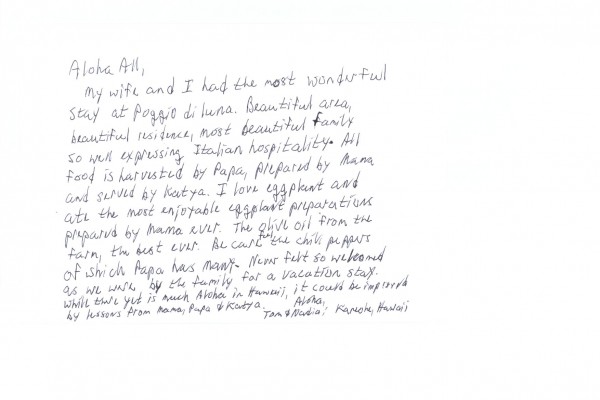 Aloha All,
My wife and I had the most wonderful
stay at Poggio di luna. Beautiful area,
beautiful residence, most beautiful family
so well expressing Italian hospitality. All
food is harvested by Papa, prepared by Mama
and served by Katya. I love eggplant and
ate the most enjoyable eggplant preparations
prepared by Mama ever. The olive oil from the
farm, the best ever. Be careful the chili peppers
of which Papa has many. Never felt so welcomed
as we were by the family for a vacation stay.
While there yet is much Aloha in Hawaii, it could be improved
by lessons from Mama, Papa & Katya. Aloha,
Tom & Nadia; Kaneohe, Hawaii